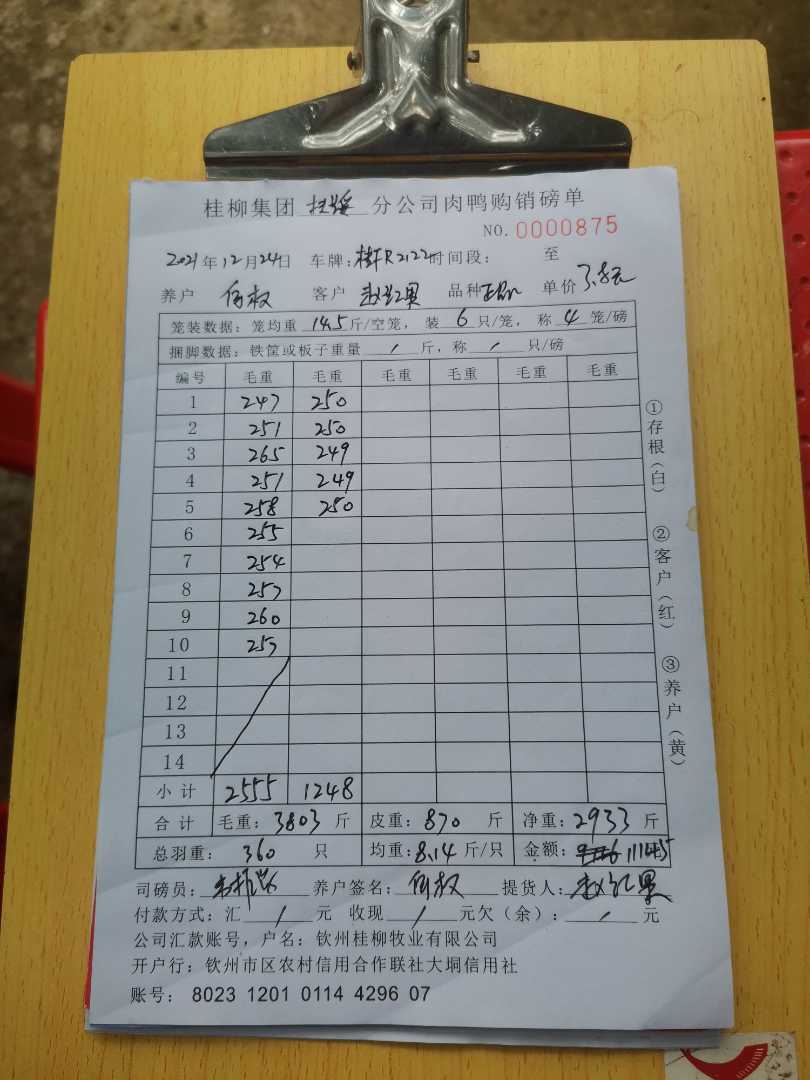 桂柳集团 分公司肉鸭购销磅单
NO.0000875
2021年12月24日 车牌:桂FR2122 时间段: 至
养户 何权 客户 赵红果 品种 单价 3.8元
笼装数据:笼均重 14.5 斤/空笼,装 6 只/笼,称 4 笼/磅
捆脚数据:铁筐或板子重量 / 斤,称 / 只/磅
编号 毛重 毛重 毛重 毛重 毛重 毛重
1 247 250
2 251 250
3 265 249
4 251 249
5 258 250
6 255
7 254
8 257
9 260
10 257
11
12
13
14
小计 2555 1248
合计 毛重:3803 斤 皮重:870 斤 净重:2933 斤
总羽重: 360 只 均重:8.14 斤/只 金额: 11145
司磅员: 养户签名:何权 提货人:赵红果
付款方式:汇 / 元 收现 / 元欠(余): / 元
公司汇款账号,户名:钦州桂柳牧业有限公司
开户行:钦州市区农村信用合作联社大垌信用社
账号: 8023 1201 0114 4296 07
①存根(白)
②客户(红)
③养户(黄)